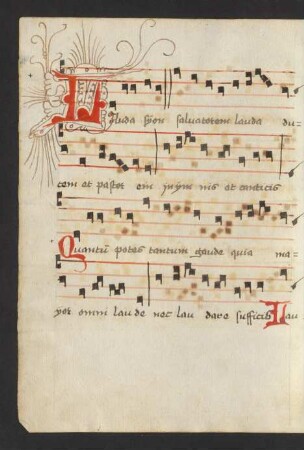 Lauda syon salvatorem lauda du-
cem et pastor em in ym nis et canticis
Quantū potes tantum gaude quia ma-
yor omni lau de nec lau dare sufficis Lau